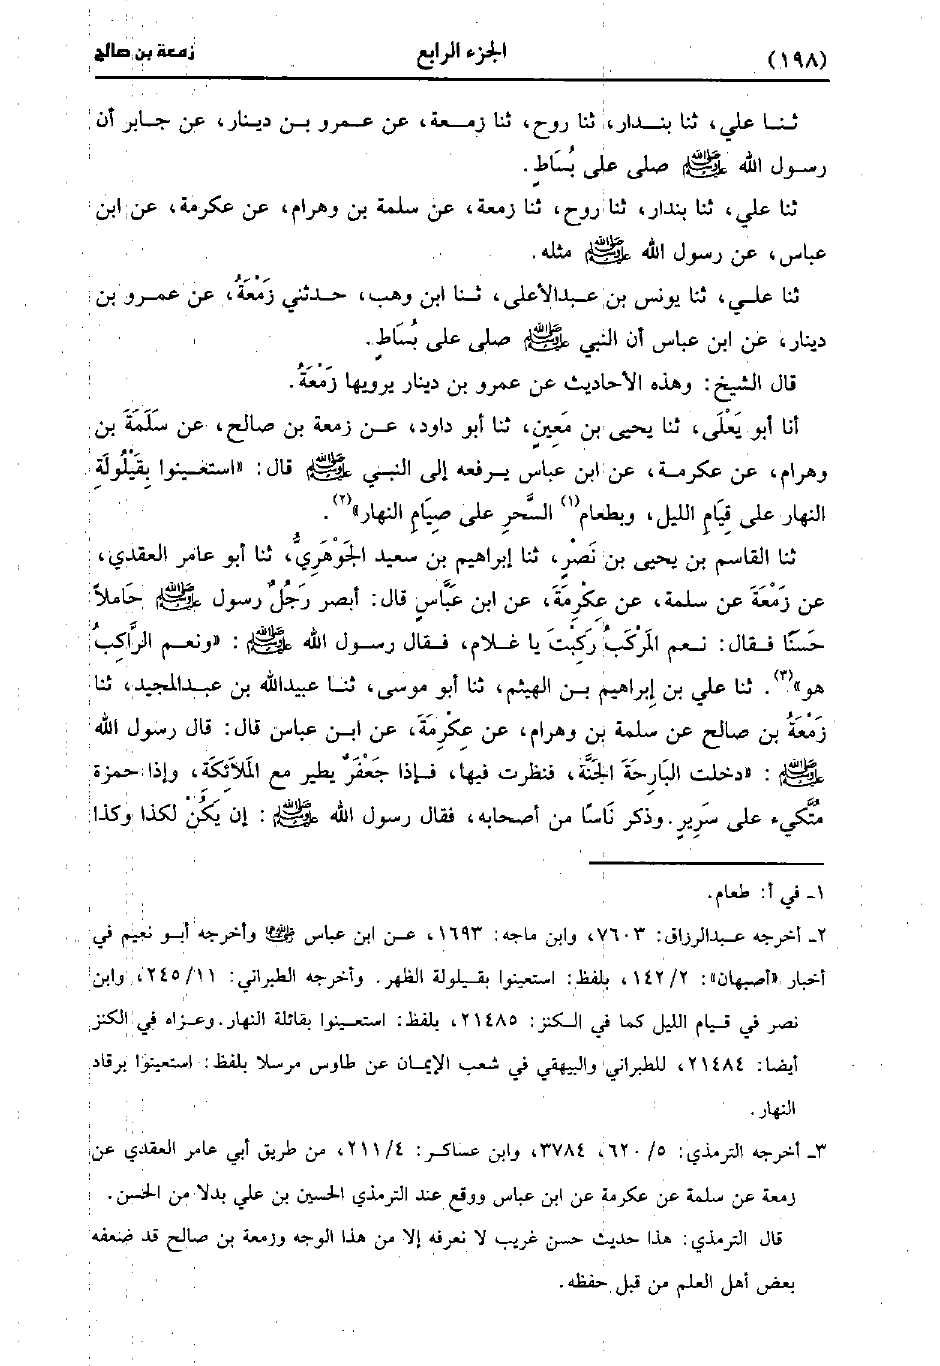 (١٩٨) الجزء الرابع زمعة بن صالح
ثنا علي، ثنا بندار، ثنا روح، ثنا زمعة، عن عمرو بن دينار، عن جابر أن
رسول الله ﷺ صلى على بُسَاطٍ.
ثنا علي، ثنا بندار، ثنا روح، ثنا زمعة، عن سلمة بن وهرام، عن عكرمة، عن ابن
عباس، عن رسول الله ﷺ مثله.
ثنا علي، ثنا يونس بن عبدالأعلى، ثنا ابن وهب، حدثني زَمْعَةُ، عن عمرو بن
دينار، عن ابن عباس أن النبي ﷺ صلى على بُسَاطٍ.
قال الشيخ: وهذه الأحاديث عن عمرو بن دينار يرويها زَمْعَةُ.
أنا أبو يَعْلَى، ثنا يحيى بن مَعِينٍ، ثنا أبو داود، عن زمعة بن صالح، عن سَلَمَةَ بن
وهرام، عن عكرمة، عن ابن عباس يرفعه إلى النبي ﷺ قال: «استعينوا بِقَيْلُولَةِ
النهار على قِيَامِ الليل، وبطعام(١) السَّحرِ على صِيَامِ النهار»(٢).
ثنا القاسم بن يحيى بن نَصْرٍ، ثنا إبراهيم بن سعيد الجَوْهَرِيُّ، ثنا أبو عامر العقدي،
عن زَمْعَةَ عن سلمة، عن عِكْرِمَةَ، عن ابن عَبَّاسٍ قال: أبصر رَجُلٌ رسول ﷺ حَاملاً
حَسَنًا فقال: نعم المَرْكَبُ رَكِبْتَ يا غلام، فقال رسول الله ﷺ: «ونعم الرَّاكِبُ
هو»(٣). ثنا علي بن إبراهيم بن الهيثم، ثنا أبو موسى، ثنا عبيدالله بن عبدالمجيد، ثنا
زَمْعَةُ بن صالح عن سلمة بن وهرام، عن عِكْرِمَةَ، عن ابن عباس قال: قال رسول الله
ﷺ: «دخلت البَارِحَةَ الجَنَّةَ، فنظرت فيها، فإذا جَعْفَرٌ يطير مع المَلاَئِكَةِ، وإذا حمزة
مُتَّكِيء على سَرِيرٍ. وذكر نَاسًا من أصحابه، فقال رسول الله ﷺ: إن يَكُنْ لكذا وكذا
١ـ في أ: طعام.
٢ـ أخرجه عبدالرزاق: ٧٦٠٣، وابن ماجه: ١٦٩٣، عن ابن عباس ﷺ وأخرجه أبو نعيم في
أخبار «أصبهان»: ١٤٢/٢، بلفظ: استعينوا بقيلولة الظهر. وأخرجه الطبراني: ٢٤٥/١١، وابن
نصر في قيام الليل كما في الكنز: ٢١٤٨٥، بلفظ: استعينوا بقائلة النهار. وعزاه في الكنز
أيضا: ٢١٤٨٤، للطبراني والبيهقي في شعب الإيمان عن طاوس مرسلا بلفظ: استعينوا برقاد
النهار.
٣ـ أخرجه الترمذي: ٦٢٠/٥، ٣٧٨٤، وابن عساكر: ٢١١/٤، من طريق أبي عامر العقدي عن
زمعة عن سلمة عن عكرمة عن ابن عباس ووقع عند الترمذي الحسين بن علي بدلا من الحسن.
قال الترمذي: هذا حديث حسن غريب لا نعرفه إلا من هذا الوجه وزمعة بن صالح قد ضعفه
بعض أهل العلم من قبل حفظه.